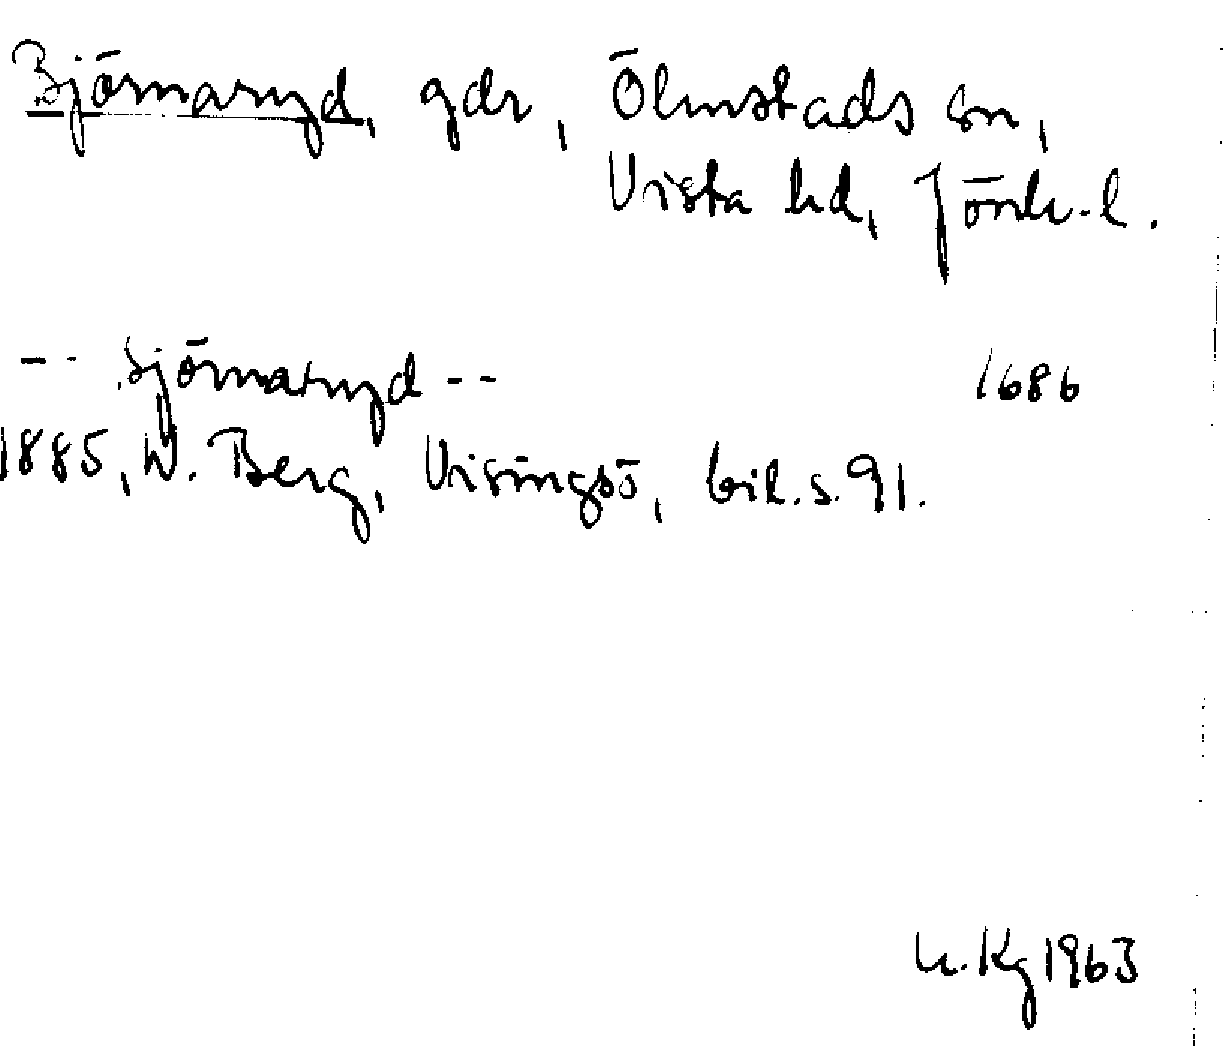 Björnaryd, gdr, Ölmstads sn,
Vista hd, Jönk. l.
-- Björnaryd -- 1686
1885, W. Berg, Visingsö, bil. s. 91.
Kg 1963